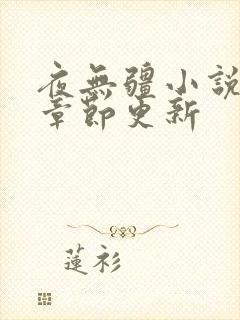 夜無疆小說
章節更新
蓮衫